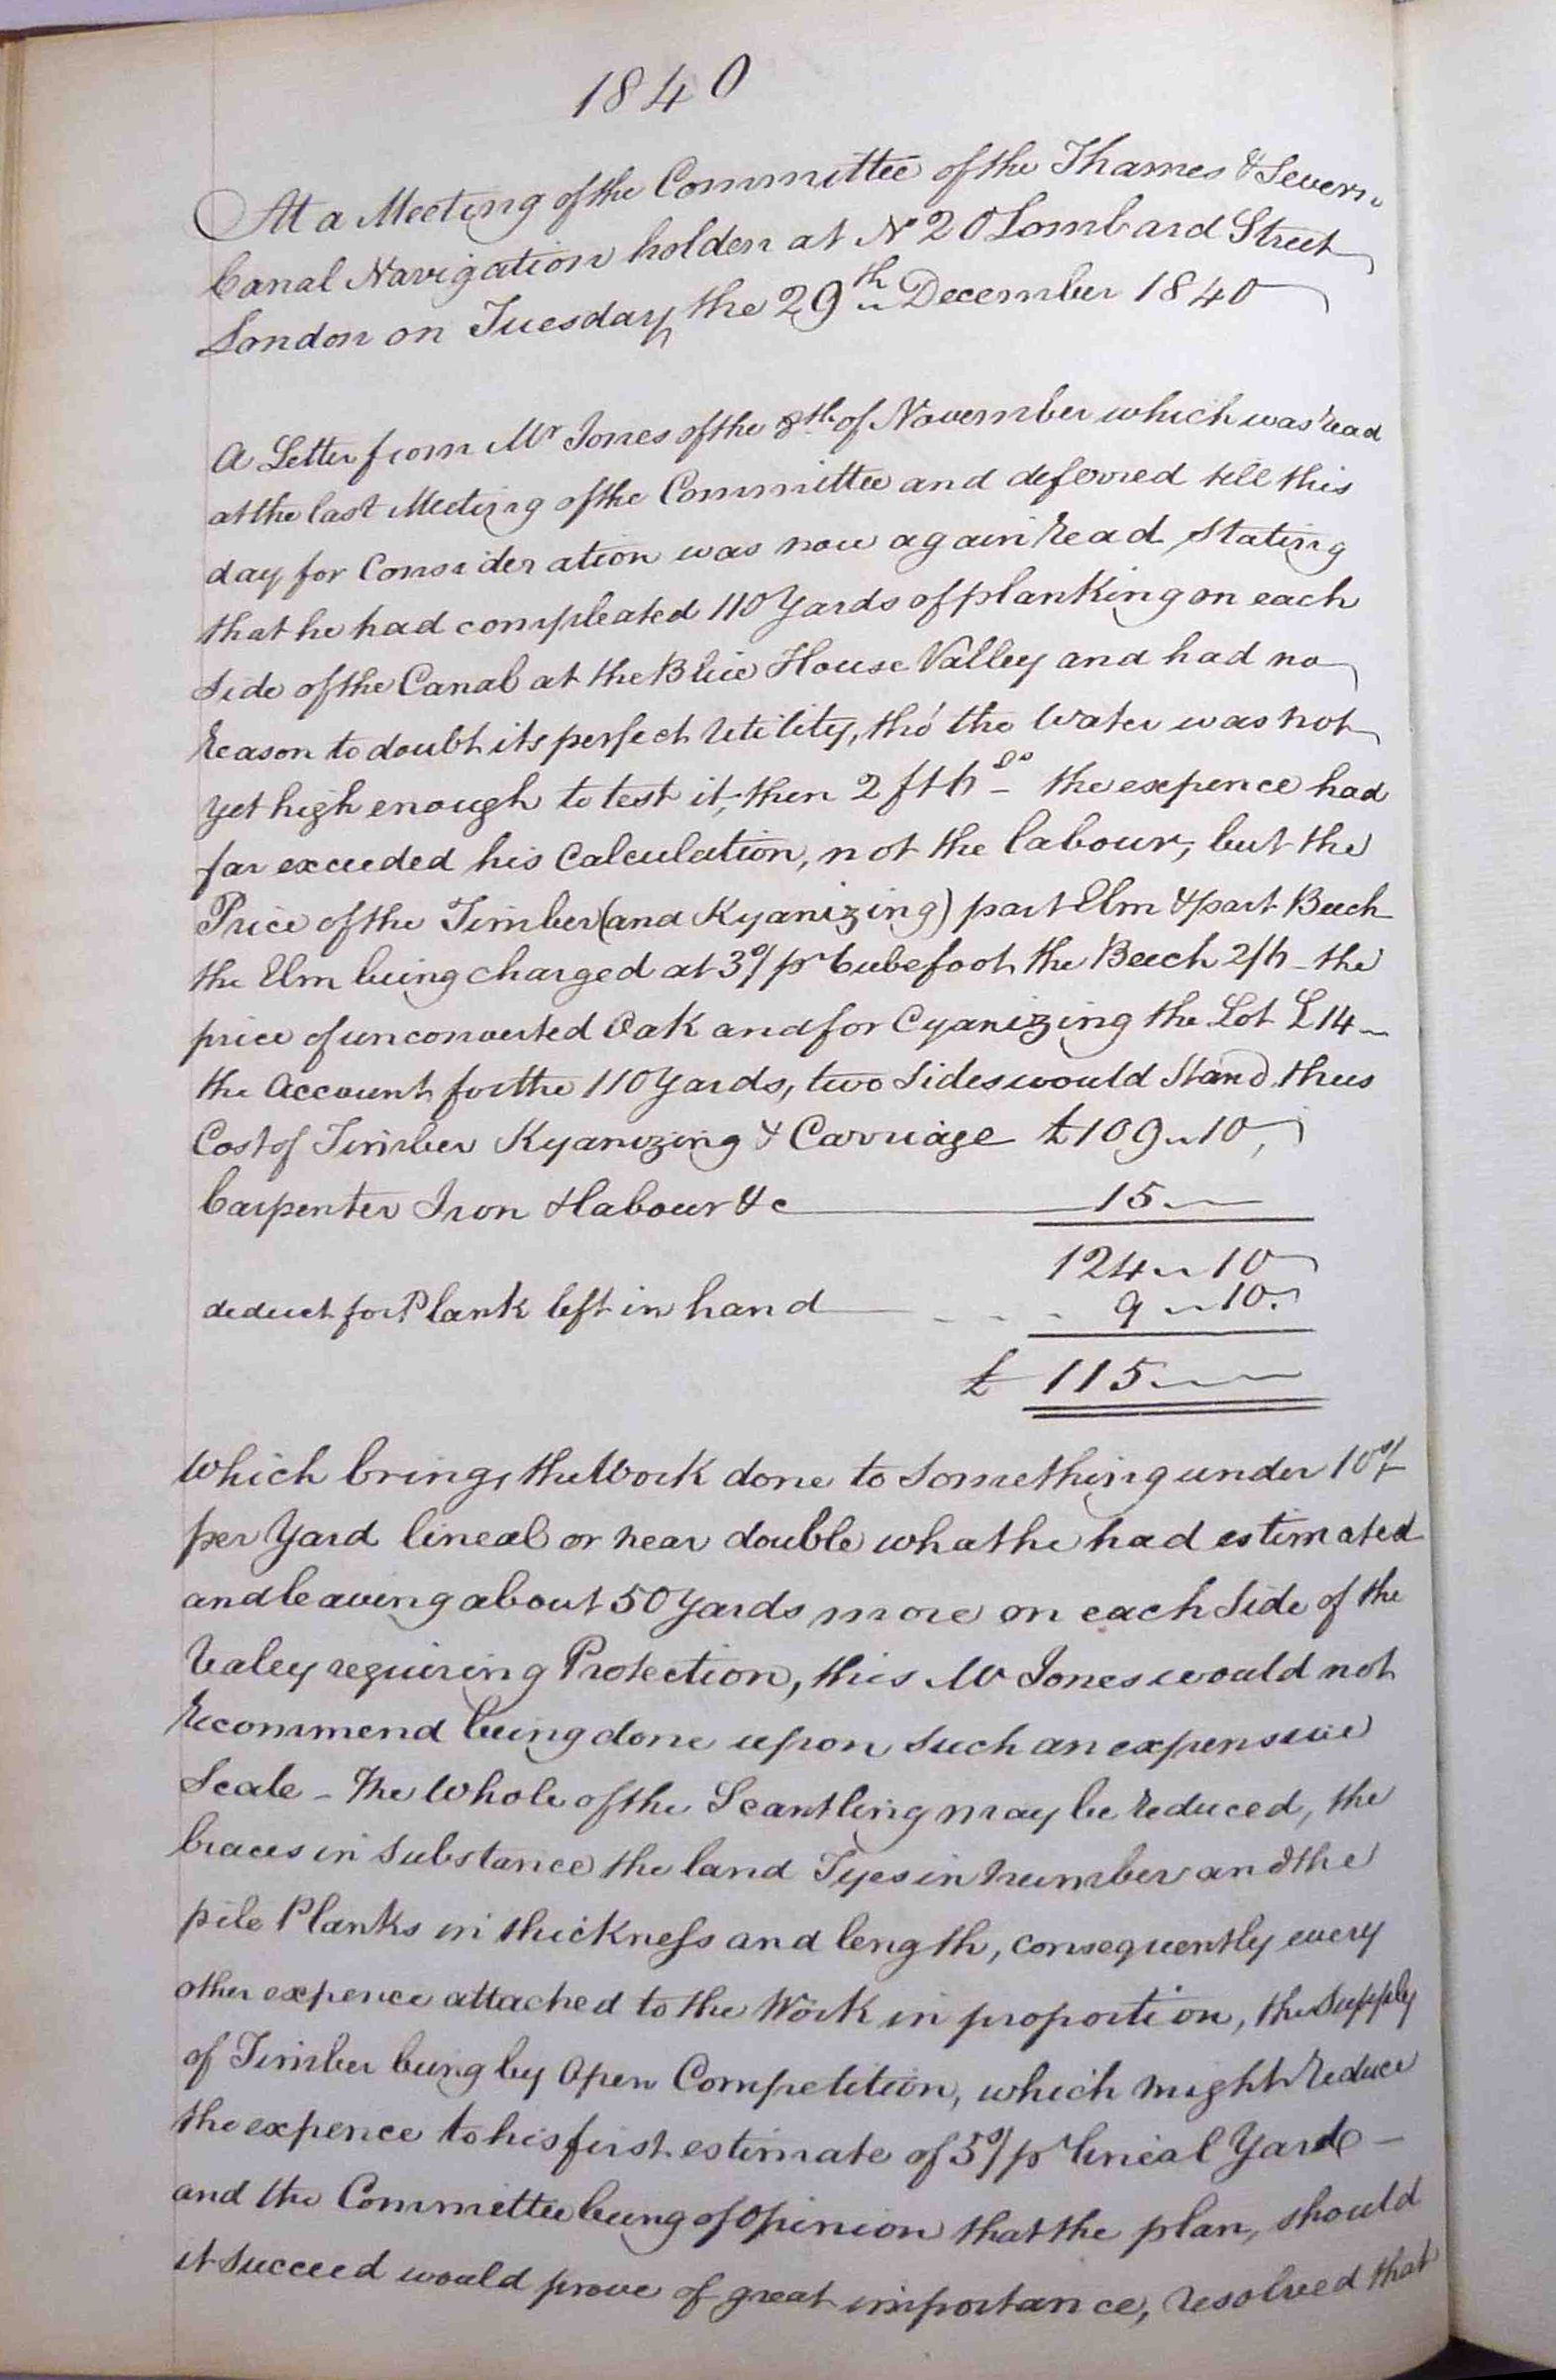 1840
At a Meeting of the Committee of the Thames & Severn
Canal Navigation holden at No 20 Lombard Street
London on Tuesday the 29th December 1840
A Letter from Mr Jones of the 8th of November which was read
at the last Meeting of the Committee and deferred till this
day for Consideration was now again read Stating
that he had compleated 110 Yards of planking on each
side of the Canal at the Blue House Valley and had no
reason to doubt its perfect Utility, tho' the Water was not
yet high enough to test it, then 2 ft 6 Do - the expence had
far exceeded his Calculation, not the labour, but the
Price of the Timber (and Kyanizing) part Elm & part Beech
the Elm being charged at 3s/ pr Cube foot, the Beech 2/6 - the
price of unconverted Oak and for Cyanizing the Lot £14 -
the Account for the 110 Yards, two sides would Stand thus
Cost of Timber Kyanizing & Carriage £109 " 10 "
Carpenter Iron & labour &c 15 " -
124 " 10
deduct for Plank left in hand - - - 9 " 10 "
£ 115 " -
Which brings the Work done to something under 10s/-
per Yard lineal or near double what he had estimated
and leaving about 50 Yards more on each Side of the
Valey requiring Protection, this Mr Jones would not
recommend being done upon such an expensive
Scale - The Whole of the Scantling may be reduced, the
braces in substance the land Tyes in number and the
pile Planks in thickness and length, consequently every
other expence attached to the Work in proportion, the supply
of Timber being by Open Competition, which might reduce
the expence to his first estimate of 5s/ pr lineal Yard -
and the Committee being of Opinion that the plan, should
it succeed would prove of great importance, resolved that